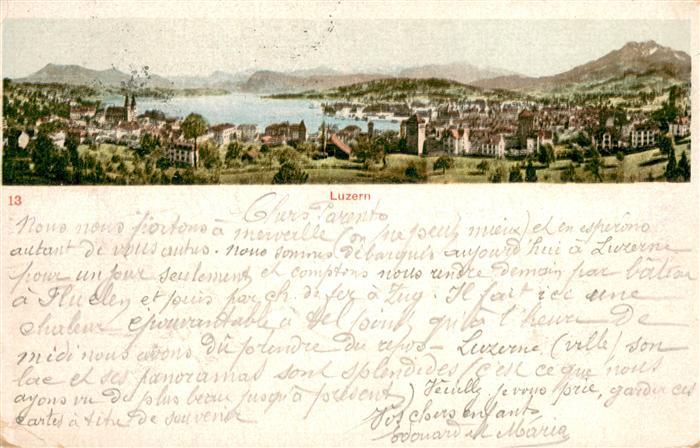 13
Luzern
Chers Parents
Nous nous portons à merveille (on ne peut mieux) et en esperons
autant de vous autres. Nous sommes débarqués aujourd'hui à Luzerne
pour un jour seulement et comptons nous rendre demain par bâteau
à Fluelen et puis par ch. de fer à Zug. Il fait ici une
chaleur épouvantable à tel point qu'à l'heure de
midi nous avons dû prendre du repos – Luzerne (ville) son
lac et ses panoramas sont splendides (c'est ce que nous
ayons vu de plus beau jusqu'à présent) Veuillez je vous prie, garder ces
cartes à titre de souvenir
Vos chers enfants
Edouard et Maria